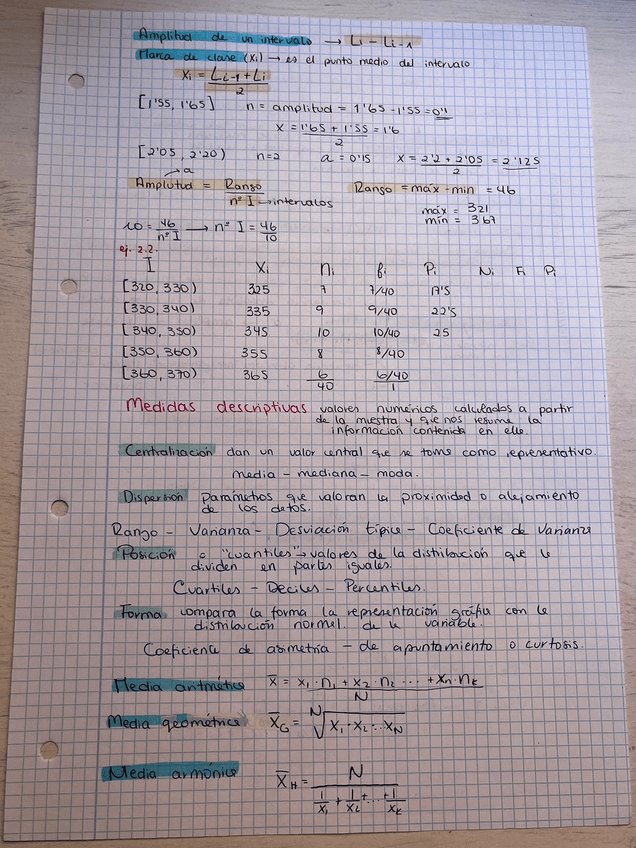 Amplitud de un intervalo → Li - Li-1
Marca de clase (xi) → es el punto medio del intervalo
xi = (Li-1 + Li) / 2
[1'55, 1'65]   n = amplitud = 1'65 - 1'55 = 0'1
x = (1'65 + 1'55) / 2 = 1'6
[2'05, 2'20)   n=2   a = 0'15   x = (2'2 + 2'05) / 2 = 2'125
→ a
Amplitud = Rango / nº I → intervalos   Rango = máx - min = 46
máx = 321
mín = 367
10 = 46 / nº I → nº I = 46 / 10
ej. 2.2.
I   Xi   ni   fi   Pi   Ni   Fi   Pi
[320, 330)   325   7   7/40   17'5
[330, 340)   335   9   9/40   22'5
[340, 350)   345   10   10/40   25
[350, 360)   355   8   8/40
[360, 370)   365   6   6/40
40   1
Medidas descriptivas valores numéricos calculados a partir
de la muestra y que nos resume la
información contenida en ello.
Centralización dan un valor central que se toma como representativo.
media - mediana - moda.
Dispersión Parámetros que valoran la proximidad o alejamiento
de los datos.
Rango - Varianza - Desviación típica - Coeficiente de varianza
Posición o "cuantiles" → valores de la distribución que le
dividen en partes iguales.
Cuartiles - Deciles - Percentiles.
Forma compara la forma la representación gráfica con le
distribución normal. de le variable.
Coeficiente de asimetría - de apuntamiento o curtosis.
Media aritmética x̄ = (x1·n1 + x2·n2 ... + xn·nk) / N
Media geométrica x̄G = ᴺ√(x1·x2...xN)
Media armónica x̄H = N / (1/x1 + 1/x2 + ... + 1/xk)